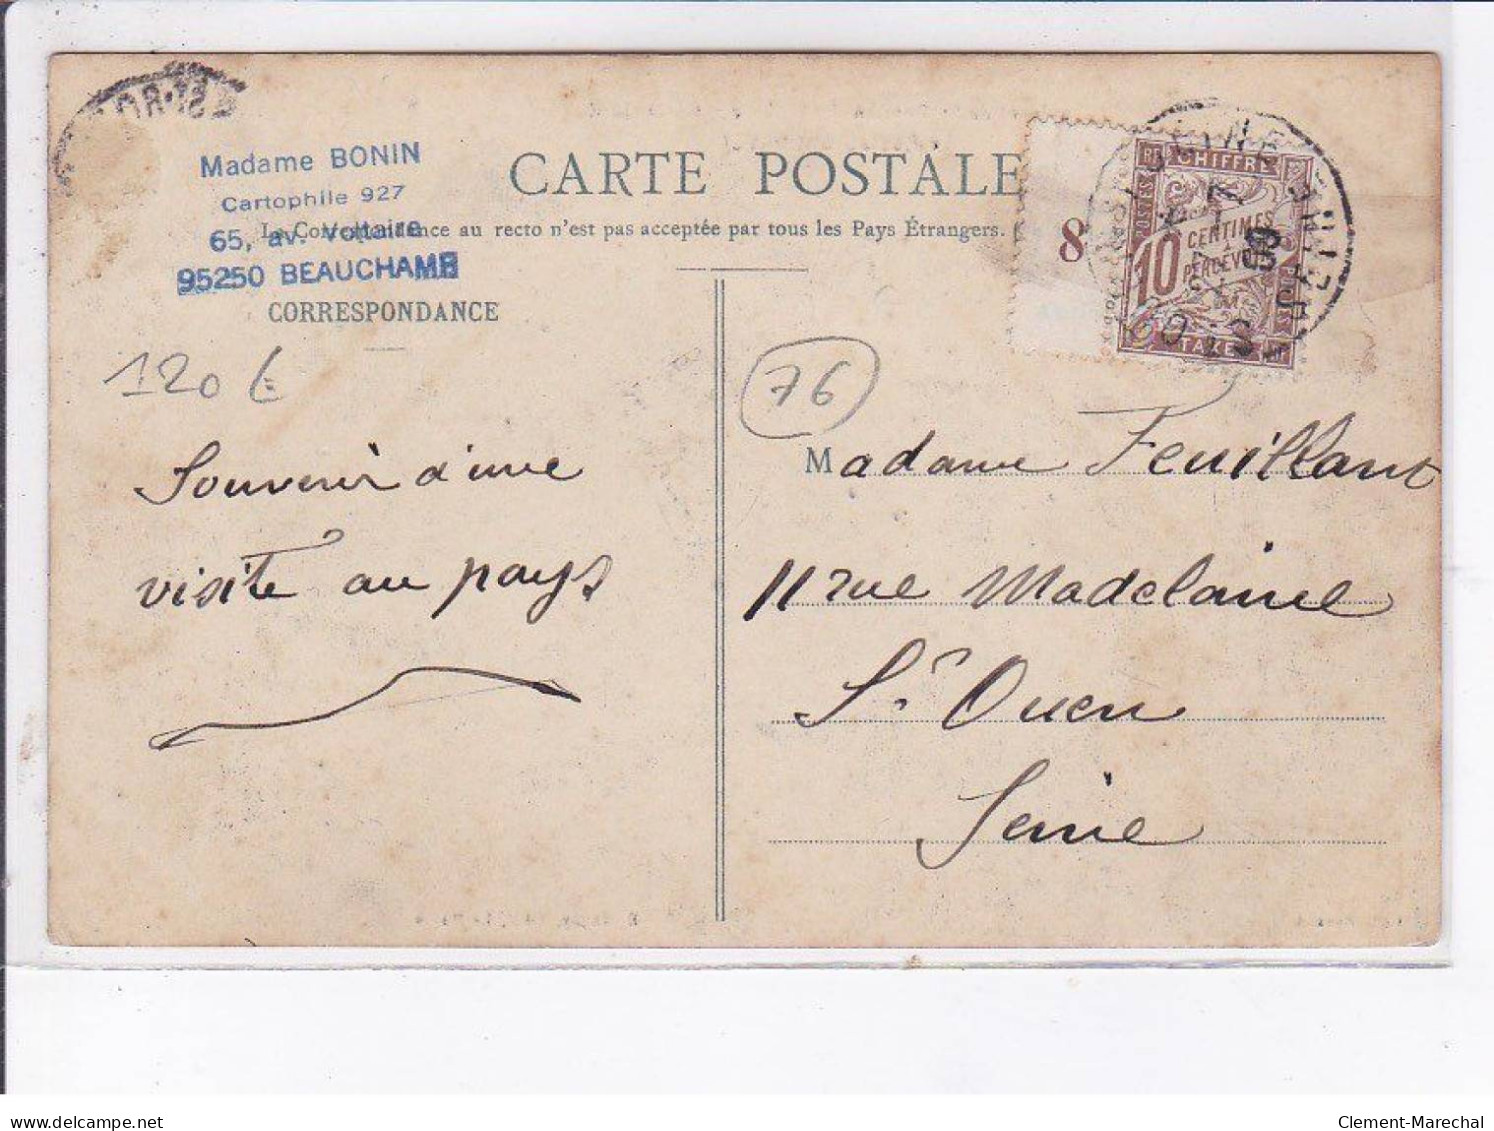 Madame BONIN
Cartophile 927
65, av. Voltaire
95250 BEAUCHAMP
CARTE POSTALE
La Correspondance au recto n'est pas acceptée par tous les Pays Étrangers.
CORRESPONDANCE
8
CHIFFRE
POSTES
10
CENTIMES
À
PERCEVOIR
TAXE
120 €
76
Souvenir d'une
visite au pays
Madame Feuillant
11 rue Madelaine
St Ouen
Seine
delcampe.net
Clement-Marechal